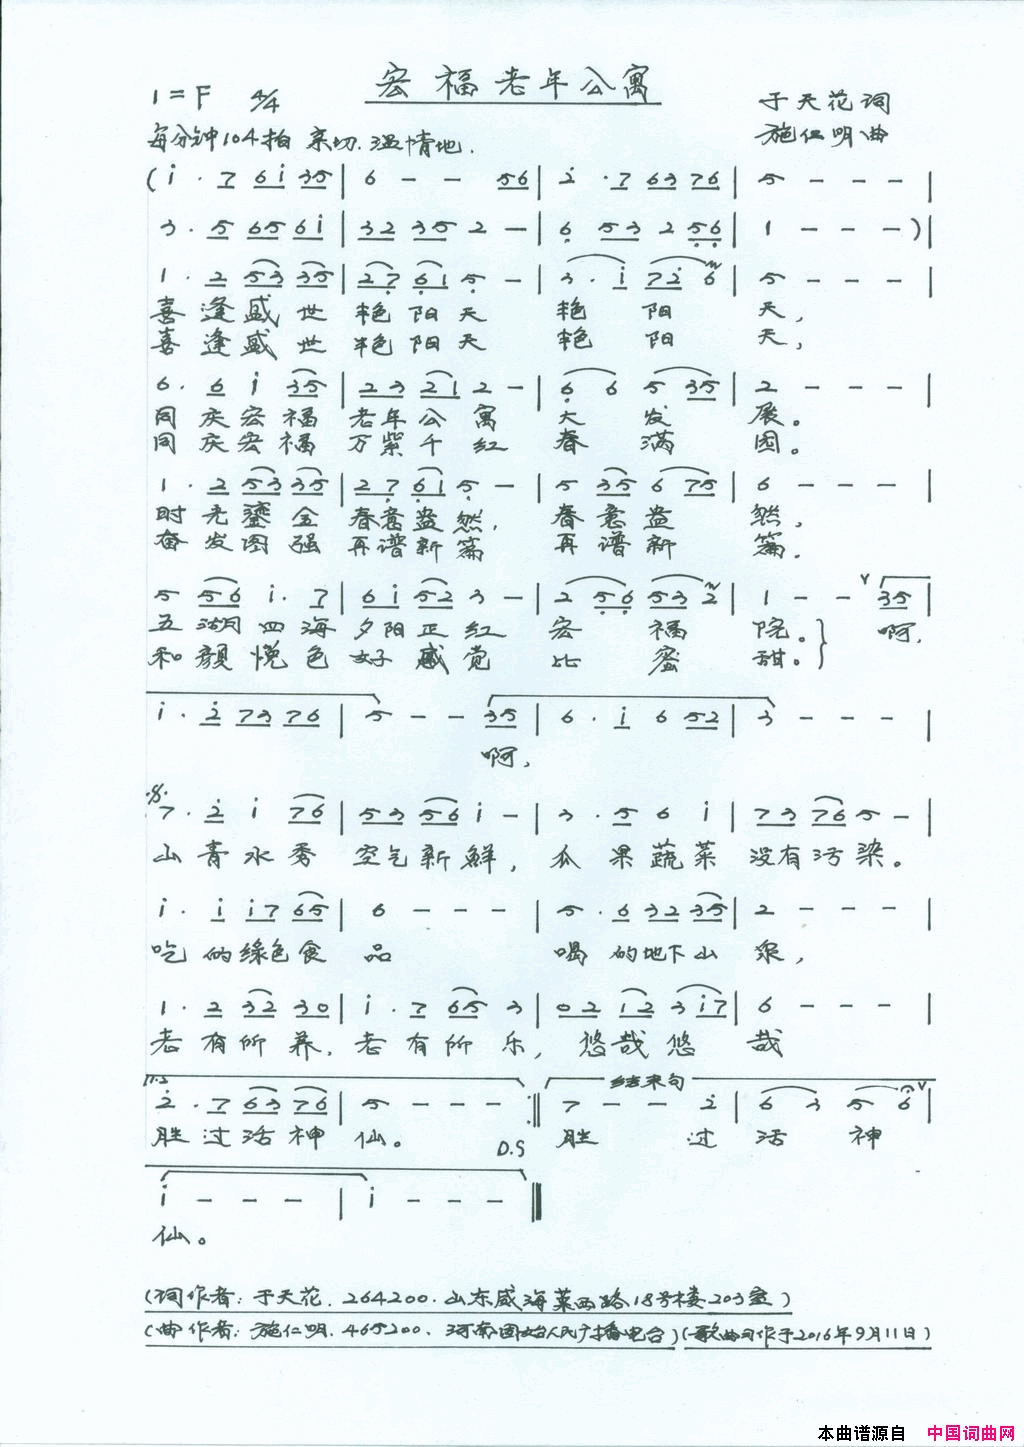 宏福老年公寓
1=F 4/4
于天花词
每分钟104拍 亲切.温情地.
施仁明曲
(i· 7 6i 35 | 6 - - 56 | 2· 7 63 76 | 5 - - - |
3· 5 65 6i | 32 35 2 - | 6 53 2 56 | 1 - - - ) |
1· 2 53 35 | 27 61 5 - | 3· i 72 6 | 5 - - - |
喜逢盛世 艳阳天 艳阳天,
喜逢盛世 艳阳天 艳阳天,
6· 6 i 35 | 23 21 2 - | 6 6 5 35 | 2 - - - |
同庆宏福 老年公寓 大发展。
同庆宏福 万紫千红 春满园。
1· 2 53 35 | 27 61 5 - | 5 35 6 75 | 6 - - - |
时光鎏金 春意盎然, 春意盎然,
奋发图强 再谱新篇 再谱新篇.
5 56 i· 7 | 6i 52 3 - | 2 56 53 2 | 1 - - 35 |
五湖四海 夕阳正红 宏福院。 啊,
和颜悦色 好感觉 比蜜甜。
i· 2 73 76 | 5 - - 35 | 6· i 6 52 | 3 - - - |
啊,
7· 2 i 76 | 53 56 i - | 3· 5 6 i | 73 76 5 - |
山青水秀 空气新鲜, 瓜果蔬菜 没有污染。
i· i i7 65 | 6 - - - | 5· 6 32 35 | 2 - - - |
吃的绿色食品 喝的地下山泉,
1· 2 32 30 | i· 7 65 3 | 02 12 3 i7 | 6 - - - |
老有所养, 老有所乐, 悠哉悠哉
1.2 结束句
2· 7 63 76 | 5 - - - :‖ 7 - - 2 | 6 3 5 6 |
胜过活神仙。 D.S 胜过活神
i - - - | i - - - ‖
仙。
(词作者:于天花.264200.山东威海莱西路18号楼203室)
(曲作者:施仁明.465200.河南固始人民广播电台)(歌曲习作于2016年9月11日)
本曲谱源自 中国词曲网